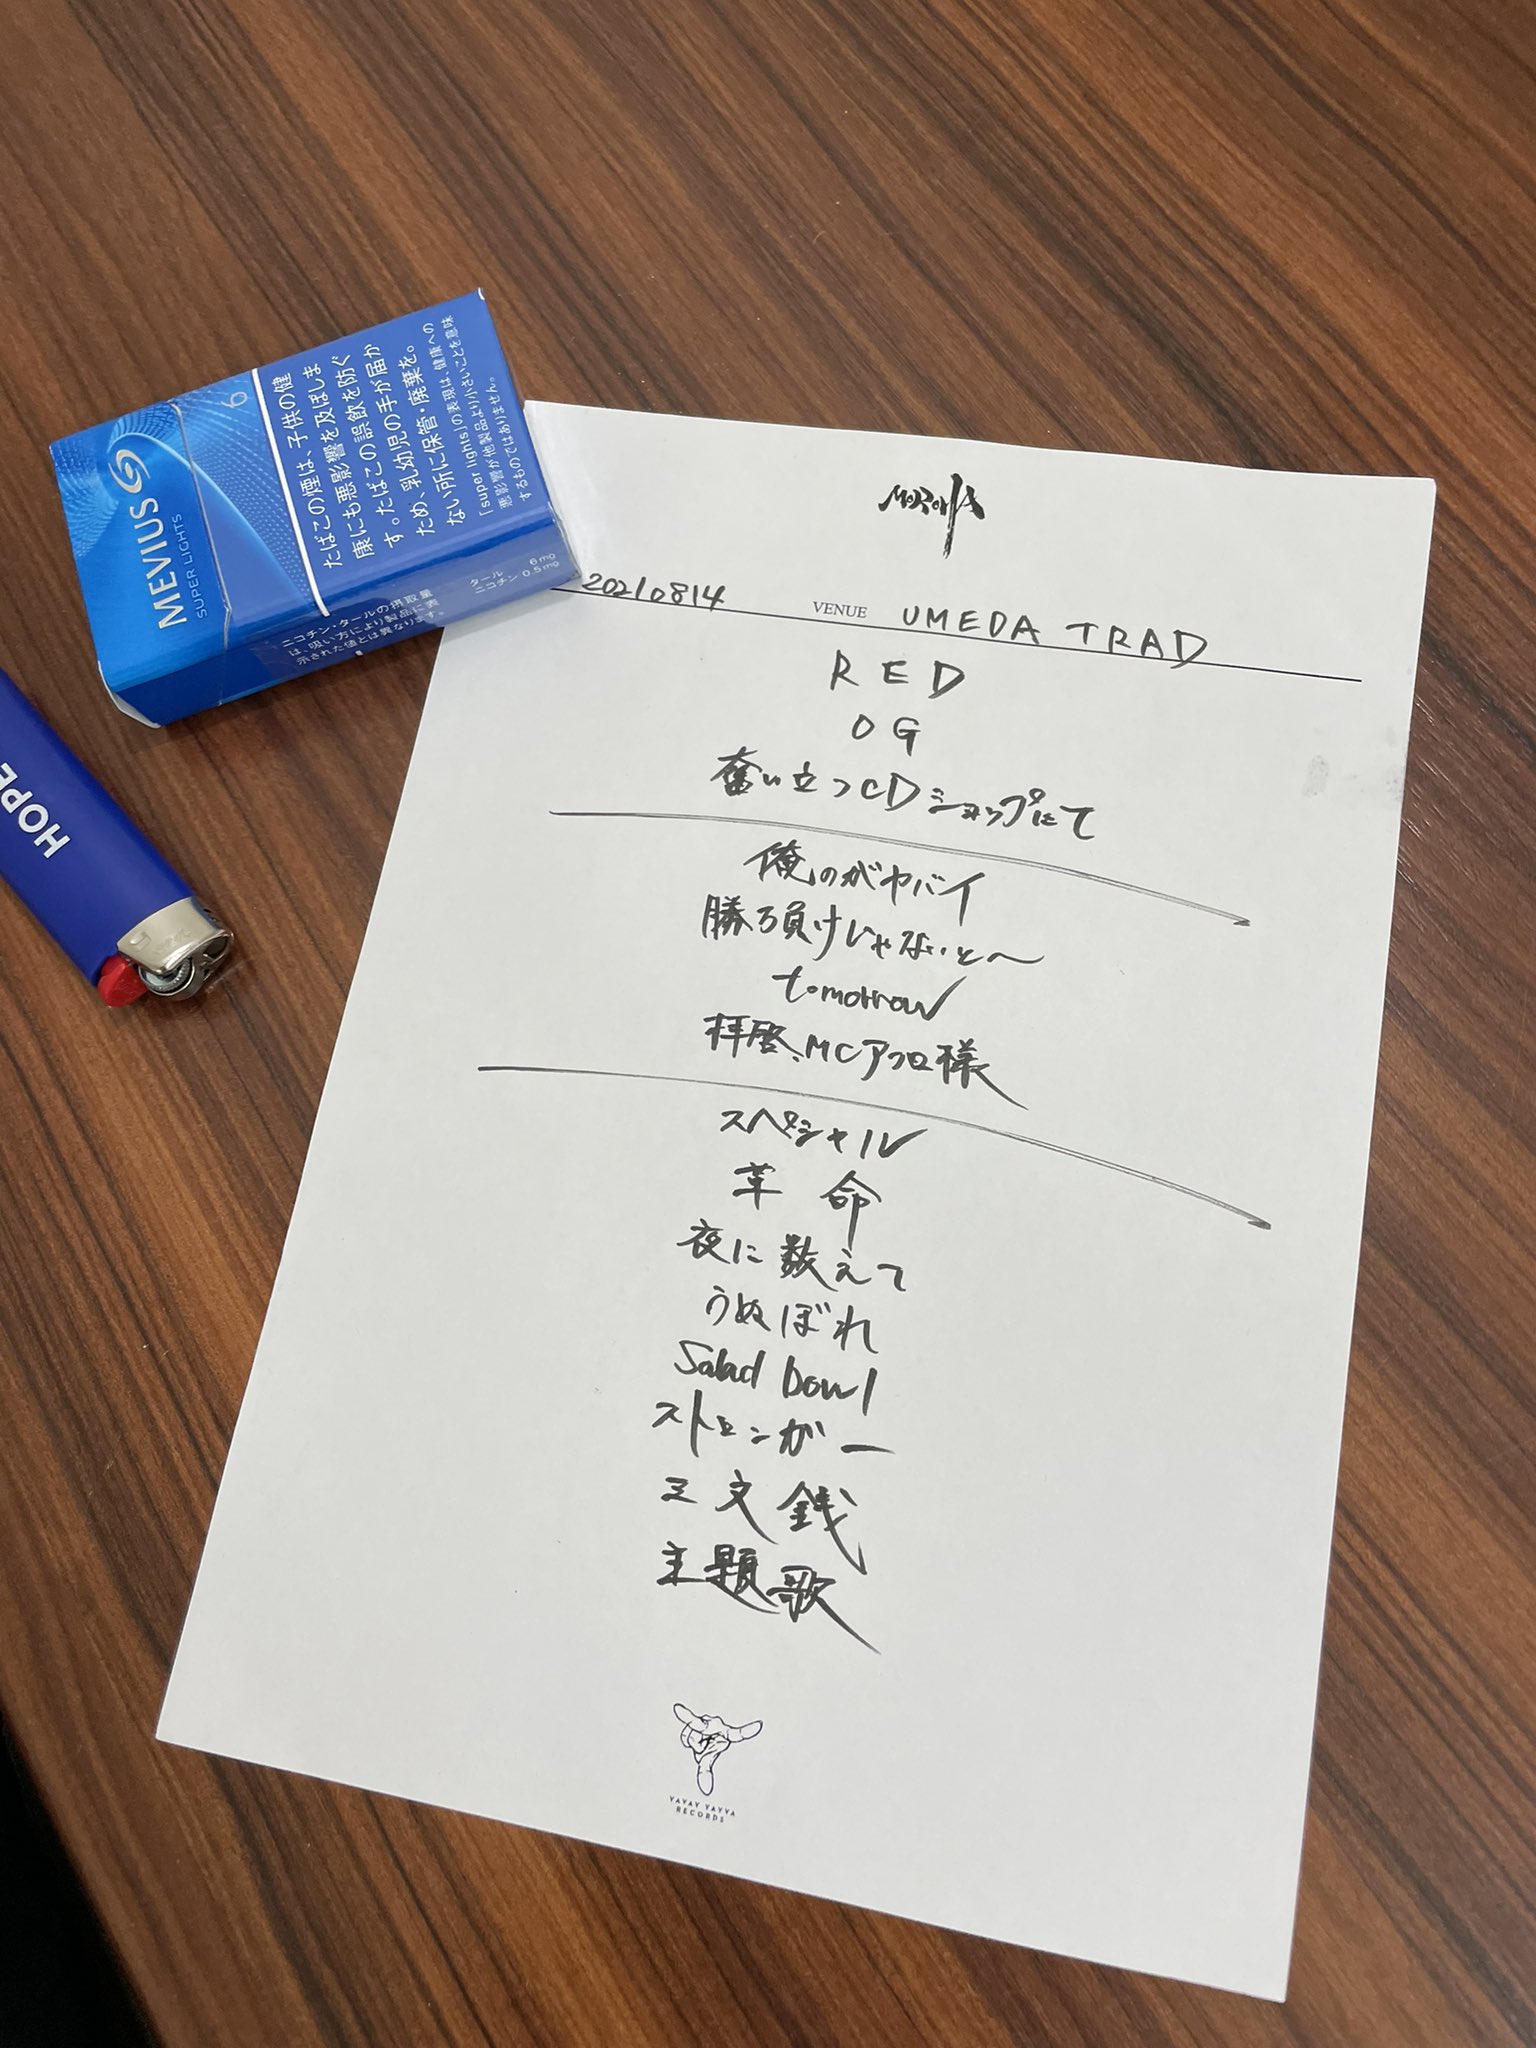 MEVIUS
SUPER LIGHTS
6
たばこの煙は、子供の健
康にも悪影響を及ぼしま
す。たばこの誤飲を防ぐ
ため、乳幼児の手が届か
ない所に保管・廃棄を。
「super lights」の表現は、健康への
悪影響が他製品より小さいことを意味
するものではありません。
ニコチン・タールの摂取量
は、吸い方により製品に表
示された値とは異なります。
タール 6mg
ニコチン 0.5mg
HOPE
MOROHA
20210814 VENUE UMEDA TRAD
RED
OG
奮い立つCDショップにて
俺のがヤバイ
勝ち負けじゃないと〜
tomorrow
拝啓、MCアフロ様
スペシャル
革命
夜に数えて
うぬぼれ
Salad bowl
ストロンガー
三文銭
主題歌
YAVAY YAYYA
RECORDS